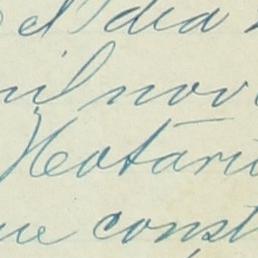 el dia
mil nov
Notari
ue const